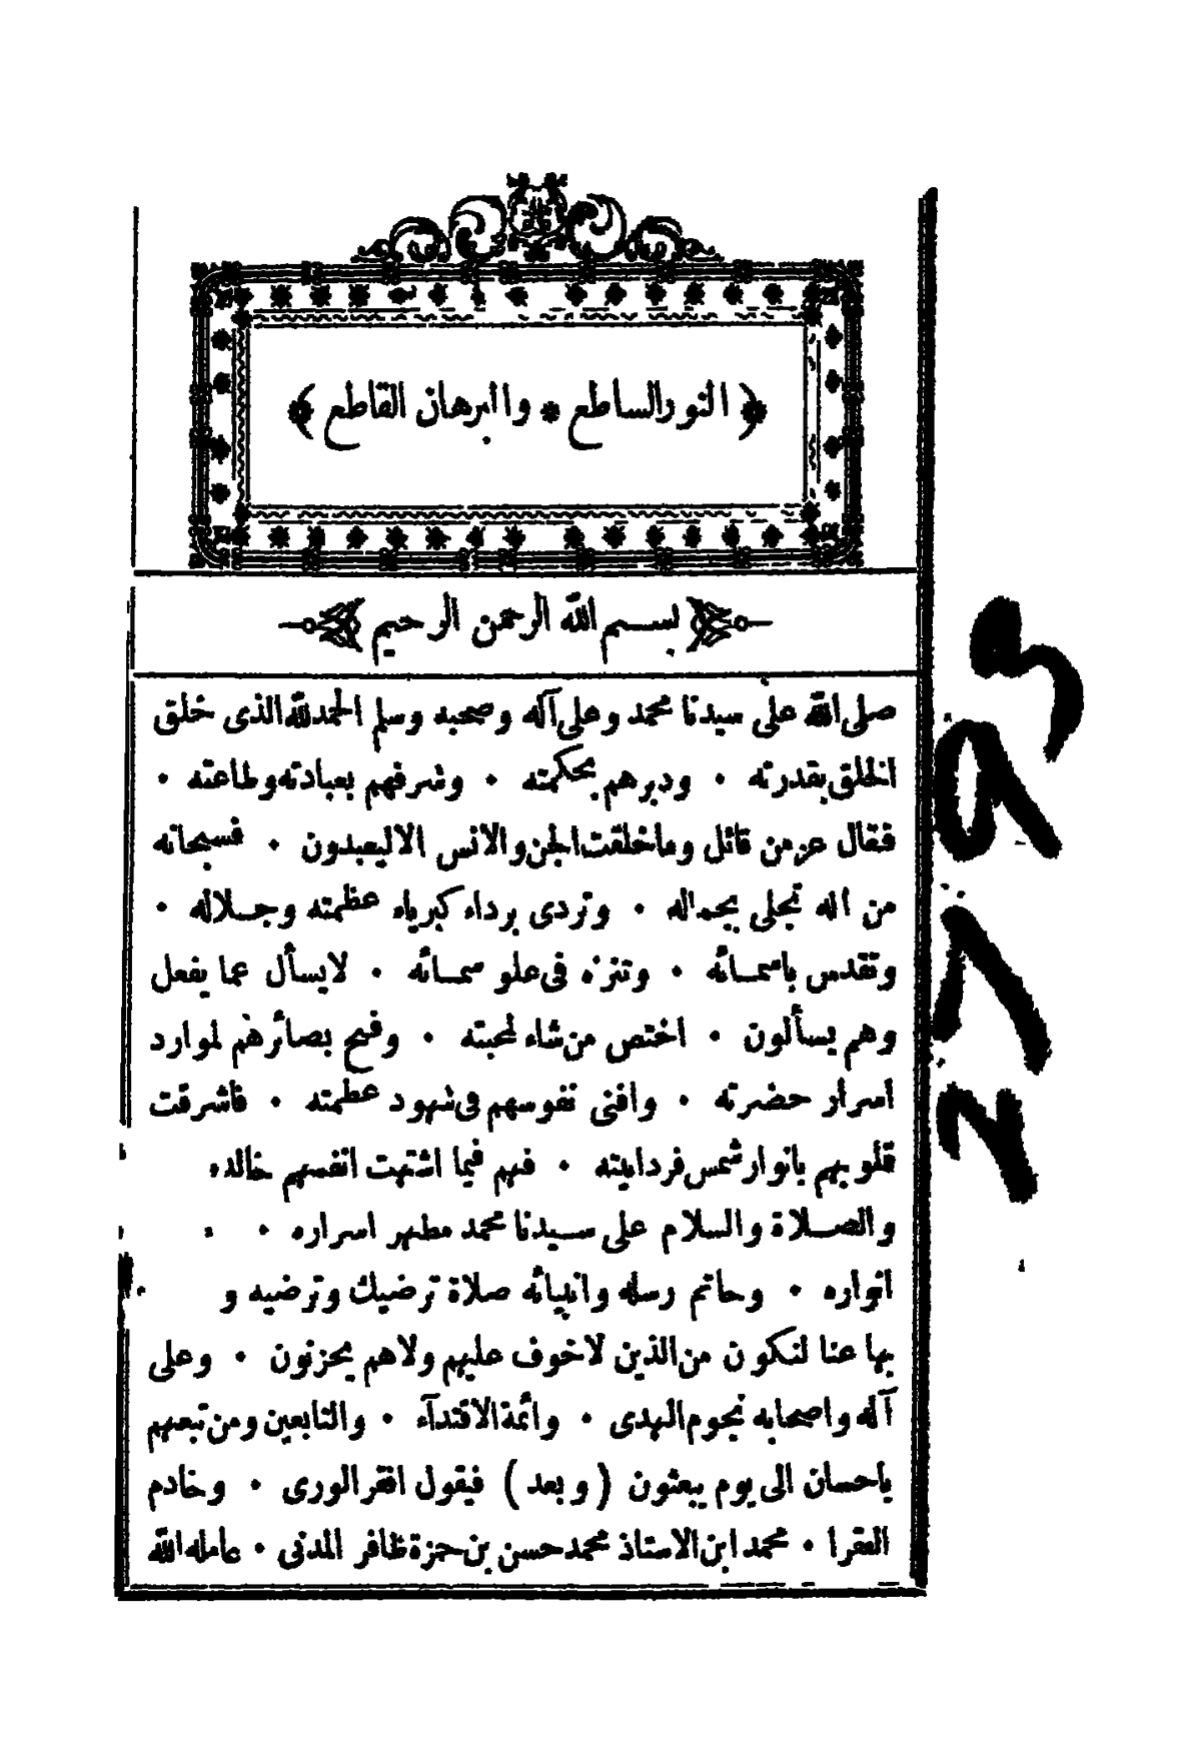 ﴿ النور الساطع * واابرهان القاطع ﴾
بسم الله الرحمن الرحيم
صلى الله على سيدنا محمد وعلى آله وصحبه وسلم الحمد لله الذى خلق
الخلق بقدرته • ودبرهم بحكمته • وشرفهم بعبادته وطاعته •
فقال عز من قائل وما خلقت الجن والانس الا ليعبدون • فسبحانه
من اله تجلى بجماله • وتردى برداء كبرياء عظمته وجلاله •
وتقدس باسمائه • وتنزه فى علو سمائه • لا يسأل عما يفعل
وهم يسألون • اختص من شاء لمحبته • وفتح بصائرهم لموارد
اسرار حضرته • وافنى نفوسهم فى شهود عظمته • فاشرقت
قلوبهم بانوار شمس فردانيته • فهم فيما اشتهت انفسهم خالد
والصلاة والسلام على سيدنا محمد مظهر اسراره •
انواره • وخاتم رسله وانبيائه صلاة ترضيك وترضيه و
بها عنا لنكون من الذين لا خوف عليهم ولا هم يحزنون • وعلى
آله واصحابه نجوم الهدى • وائمة الاقتدآء • والتابعين ومن تبعهم
باحسان الى يوم يبعثون (وبعد) فيقول افقر الورى • وخادم
الفقرا • محمد ابن الاستاذ محمد حسن بن حمزة ظافر المدنى • عامله الله